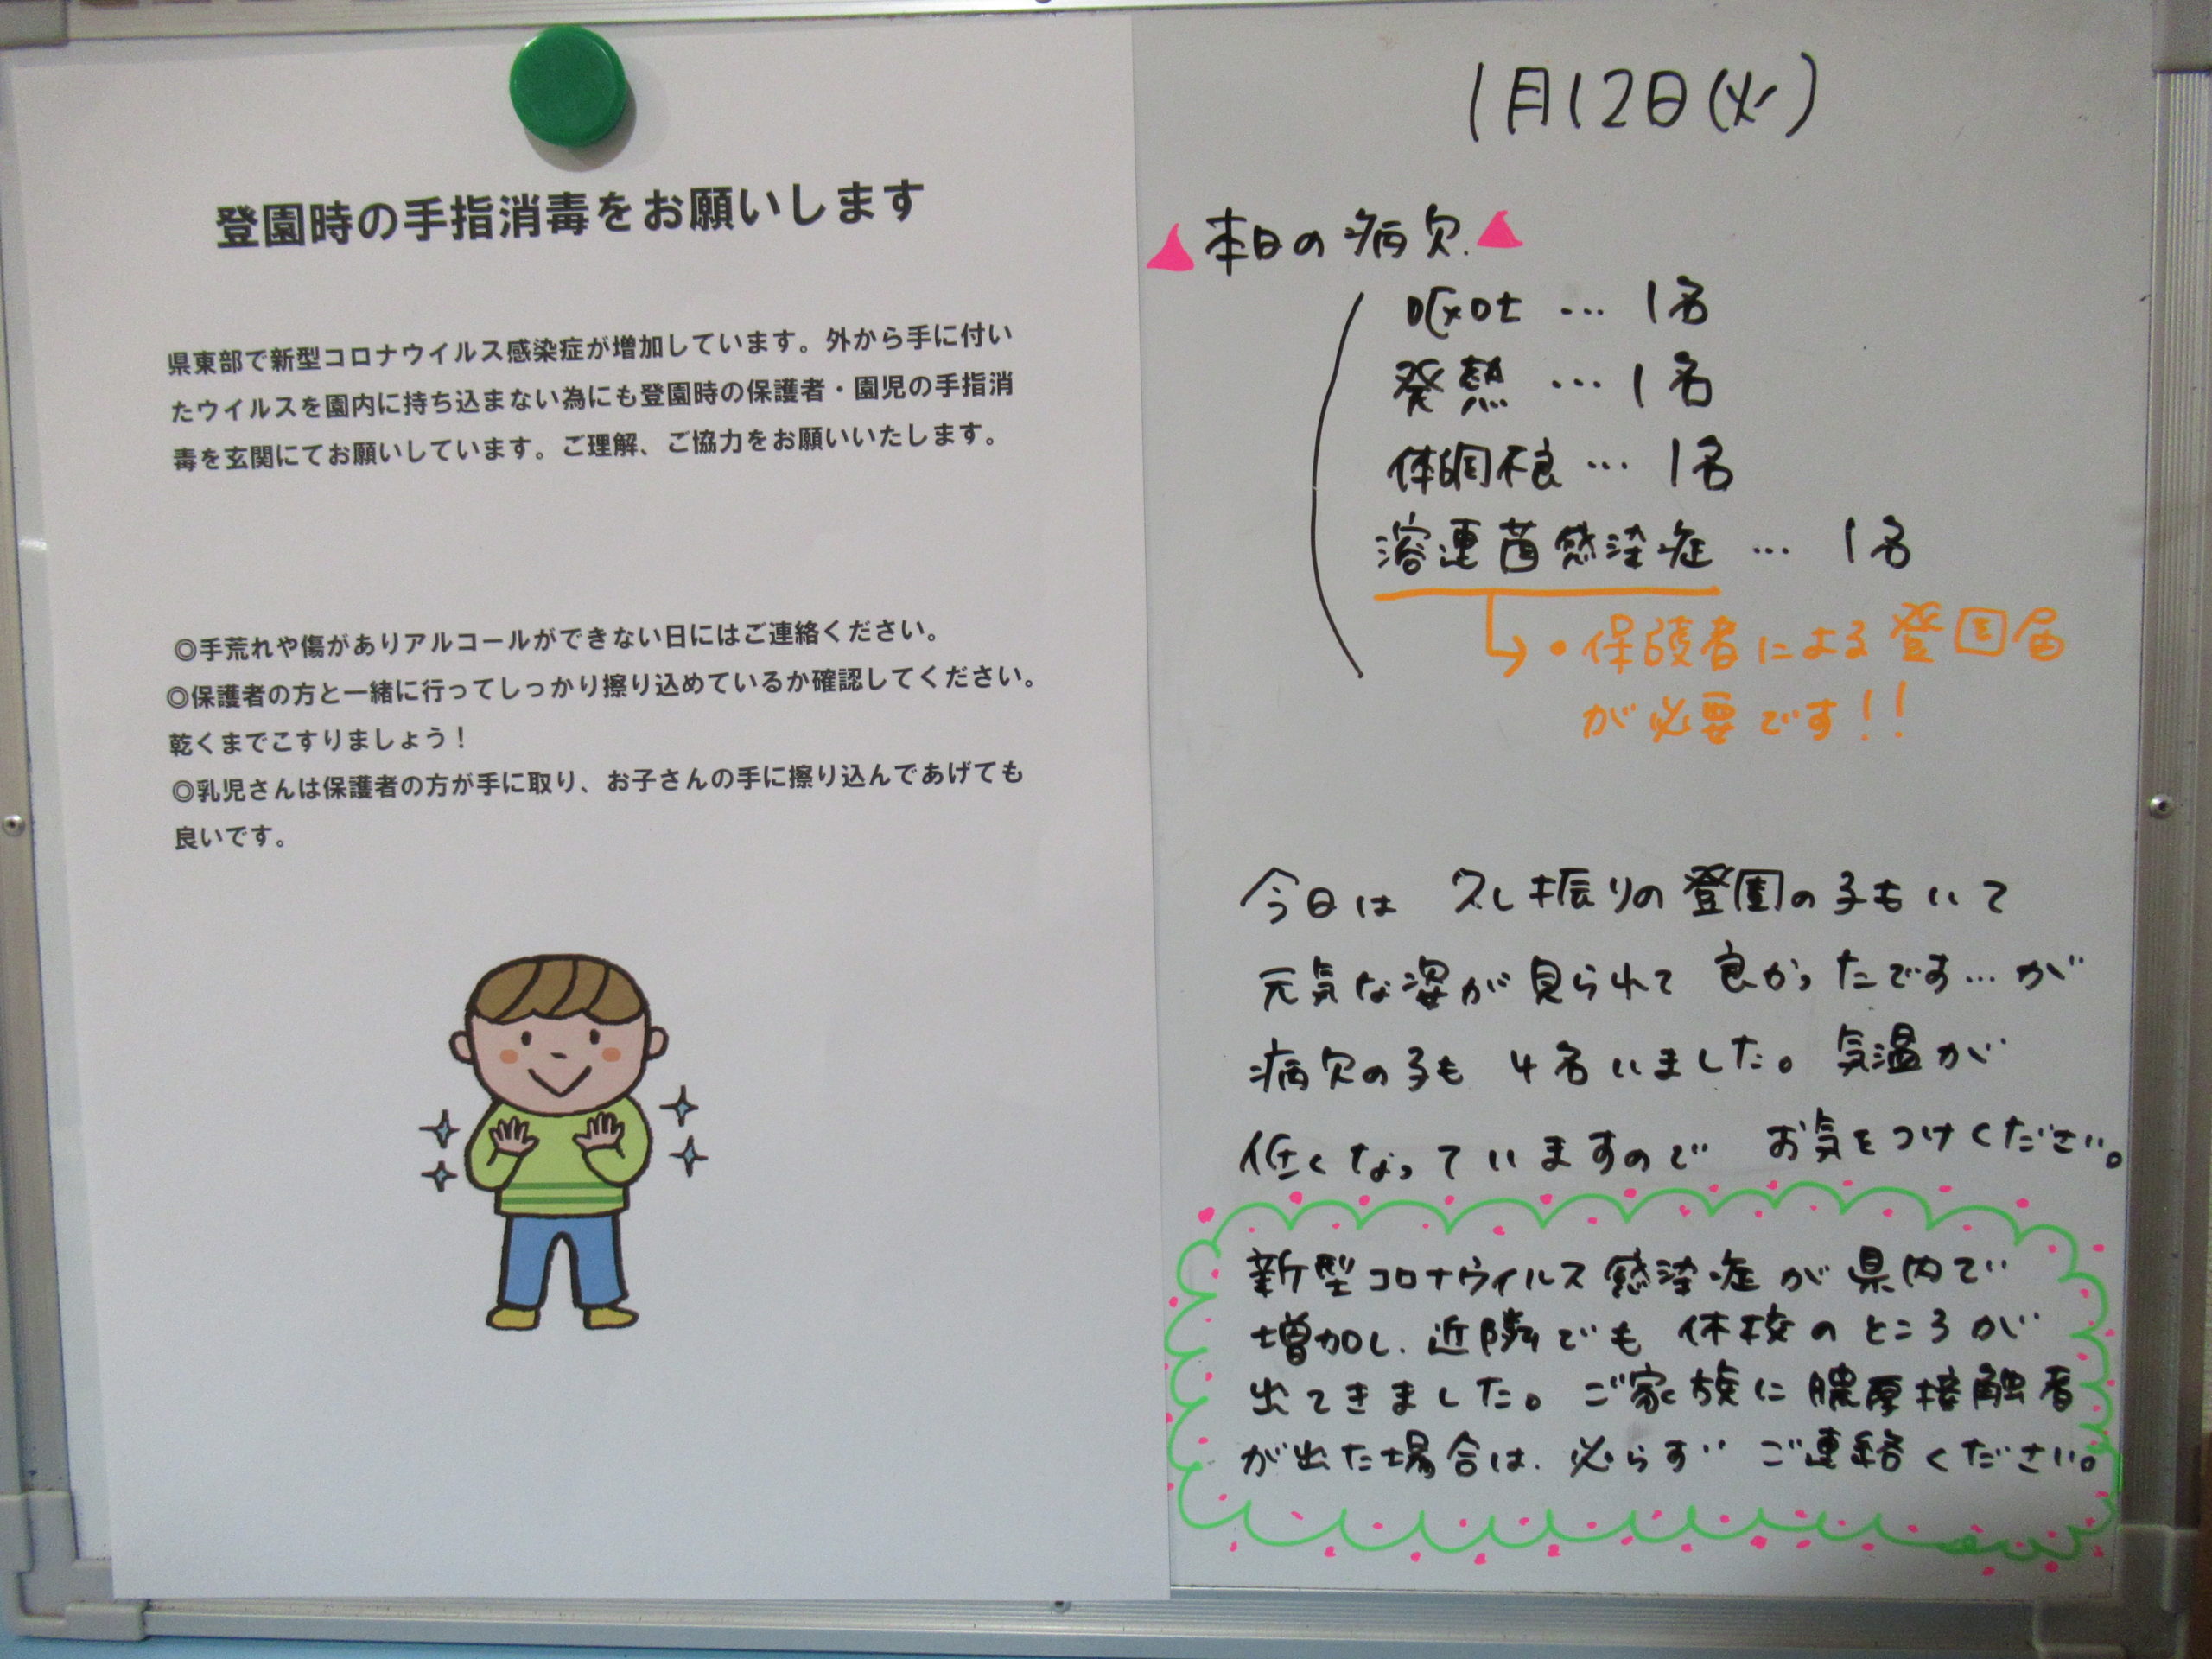 登園時の手指消毒をお願いします
県東部で新型コロナウイルス感染症が増加しています。外から手に付い
たウイルスを園内に持ち込まない為にも登園時の保護者・園児の手指消
毒を玄関にてお願いしています。ご理解、ご協力をお願いいたします。
◎手荒れや傷がありアルコールができない日にはご連絡ください。
◎保護者の方と一緒に行ってしっかり擦り込めているか確認してください。
乾くまでこすりましょう！
◎乳児さんは保護者の方が手に取り、お子さんの手に擦り込んであげても
良いです。
1月12日(火)
本日の病欠
嘔吐…1名
発熱…1名
体調不良…1名
溶連菌感染症…1名
・保護者による登園届
が必要です!!
今日は 久し振りの登園の子もいて
元気な姿が見られて良かったです…が
病欠の子も 4名いました。気温が
低くなっていますので お気をつけください。
新型コロナウイルス感染症が県内で
増加し、近隣でも休校のところが
出てきました。ご家族に濃厚接触者
が出た場合は、必らず ご連絡ください。